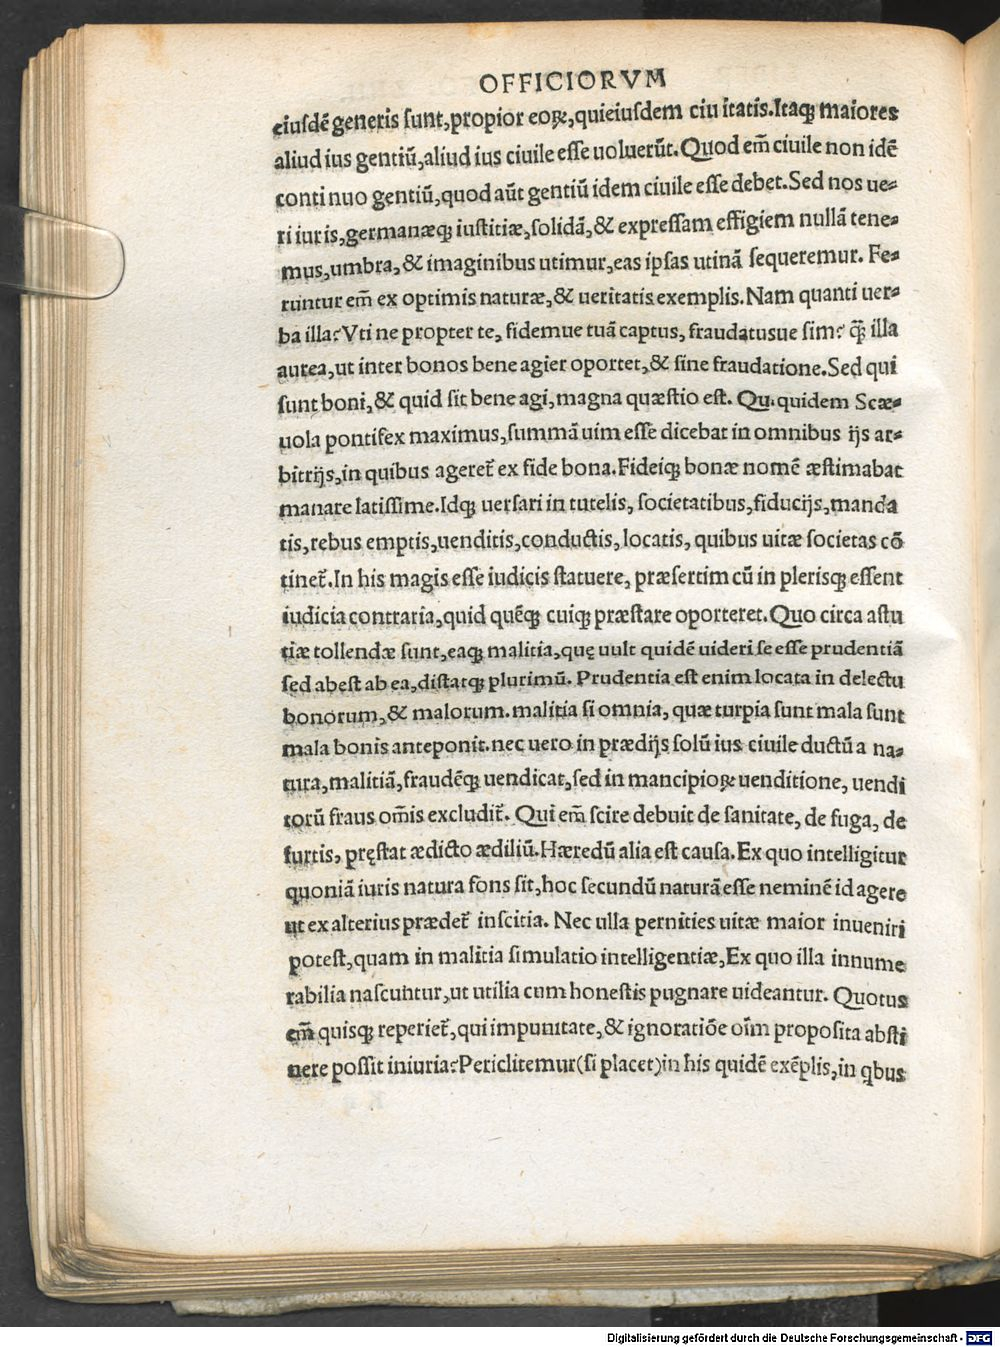 OFFICIORVM
eiuſdē generis ſunt,propior eoꝝ,quieiuſdem ciu itatis.Itaqꝫ maiores
aliud ius gentiū,aliud ius ciuile eſſe uoluerūt.Quod em̄ ciuile non idē
conti nuo gentiū,quod aūt gentiū idem ciuile eſſe debet.Sed nos ue-
ri iuris,germanæqꝫ iuſtitiæ,ſolidā,& expreſſam effigiem nullā tene-
mus,umbra,& imaginibus utimur,eas ipſas utinā ſequeremur. Fe-
runtur em̄ ex optimis naturæ,& ueritatis exemplis.Nam quanti uer-
ba illa?Vti ne propter te, fidemue tuā captus, fraudatusue ſim? q̄ꝫ illa
aurea,ut inter bonos bene agier oportet,& ſine fraudatione.Sed qui
ſunt boni,& quid ſit bene agi,magna quæſtio eſt. Qu. quidem Scæ-
uola pontifex maximus,ſummā uim eſſe dicebat in omnibus ijs ar-
bitrijs,in quibus ageret᷑ ex fide bona.Fideiqꝫ bonæ nomē æſtimabat
manare latiſſime.Idqꝫ uerſari in tutelis, ſocietatibus,fiducijs,manda
tis,rebus emptis,uenditis,conductis, locatis, quibus uitæ ſocietas cō
tinet᷑.In his magis eſſe iudicis ſtatuere, præſertim cū in plerisqꝫ eſſent
iudicia contraria,quid quēqꝫ cuiqꝫ præſtare oporteret.Quo circa aſtu
tiæ tollendæ ſunt,eaqꝫ malitia,quę uult quidē uideri ſe eſſe prudentiā
ſed abeſt ab ea,diſtatqꝫ plurimū. Prudentia eſt enim locata in delectu
bonorum,& malorum. malitia ſi omnia, quæ turpia ſunt mala ſunt
mala bonis anteponit.nec uero in prædijs ſolū ius ciuile ductū a na-
tura,malitiā,fraudēqꝫ uendicat,ſed in mancipioꝝ uenditione, uendi
torū fraus om̄is excludit᷑. Qui em̄ ſcire debuit de ſanitate, de fuga, de
furtis, pręſtat ædicto ædiliū.Hæredū alia eſt cauſa. Ex quo intelligitur
quoniā iuris natura fons ſit,hoc ſecundū naturā eſſe neminē id agere
ut ex alterius prædet᷑ inſcitia. Nec ulla pernities uitæ maior inueniri
poteſt,quam in malitia ſimulatio intelligentiæ,Ex quo illa innume
rabilia naſcuntur,ut utilia cum honeſtis pugnare uideantur. Quotus
em̄ quisqꝫ reperiet᷑,qui impunitate,& ignoratiōe oīm propoſita abſti
nere poſſit iniuria?Periclitemur(ſi placet)in his quidē exēplis,in qbus
Digitalisierung gefördert durch die Deutsche Forschungsgemeinschaft - DFG